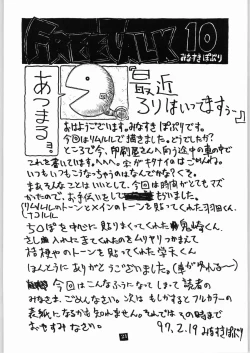 FREE TALK 10
みなすき ぽぷり
あつまるョ。
『最近
ろりはいってますぅ〜』
おはようございます。みなすき ぽぷりです。
今回はリムルルで描きました。どうでしたか?
ところで今、印刷屋さんへ向う途中の車の中で
これを書いています。へへへ。字がキタナイのはごめんね。
いつもいつもこうなっちゃうのはなんでかな?くそ。
まぁそんなことはいいとして、今回は時間がとてもマズ
かったので、お手伝いをして もらいました。
リムルルのトーンとメインのトーンを貼ってくれた羽田くん、
を中心に貼りまくってくれた
さしいれにきてくれたのをムリヤリつかまえて
のトーンを貼ってくれた くん
ほんとうに ありがとうございました。(車がゆれる〜)
今回はこんなふうになってしまって読者の
みなさま、ごめんなさい。次は もしかするとフルカラーの
表紙になるかも知れません。それでは この時まで
おやすみなさい。
97.2.19 みなすきぽぷり